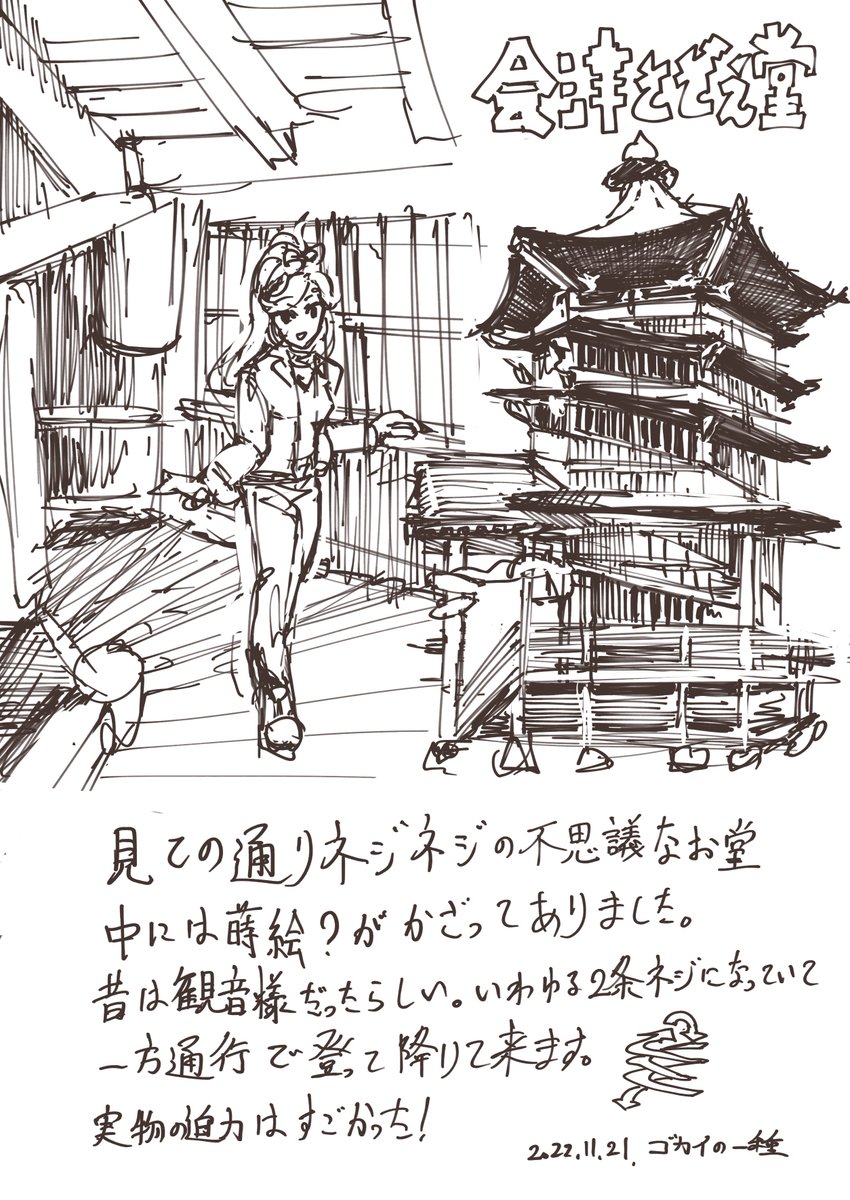 会津さざえ堂
見ての通りネジネジの不思議なお堂
中には蒔絵?がかざってありました。
昔は観音様だったらしい。いわゆる2条ネジになっていて
一方通行で登って降りて来ます。
実物の迫力はすごかった!
2022.11.21. ゴカイの一種